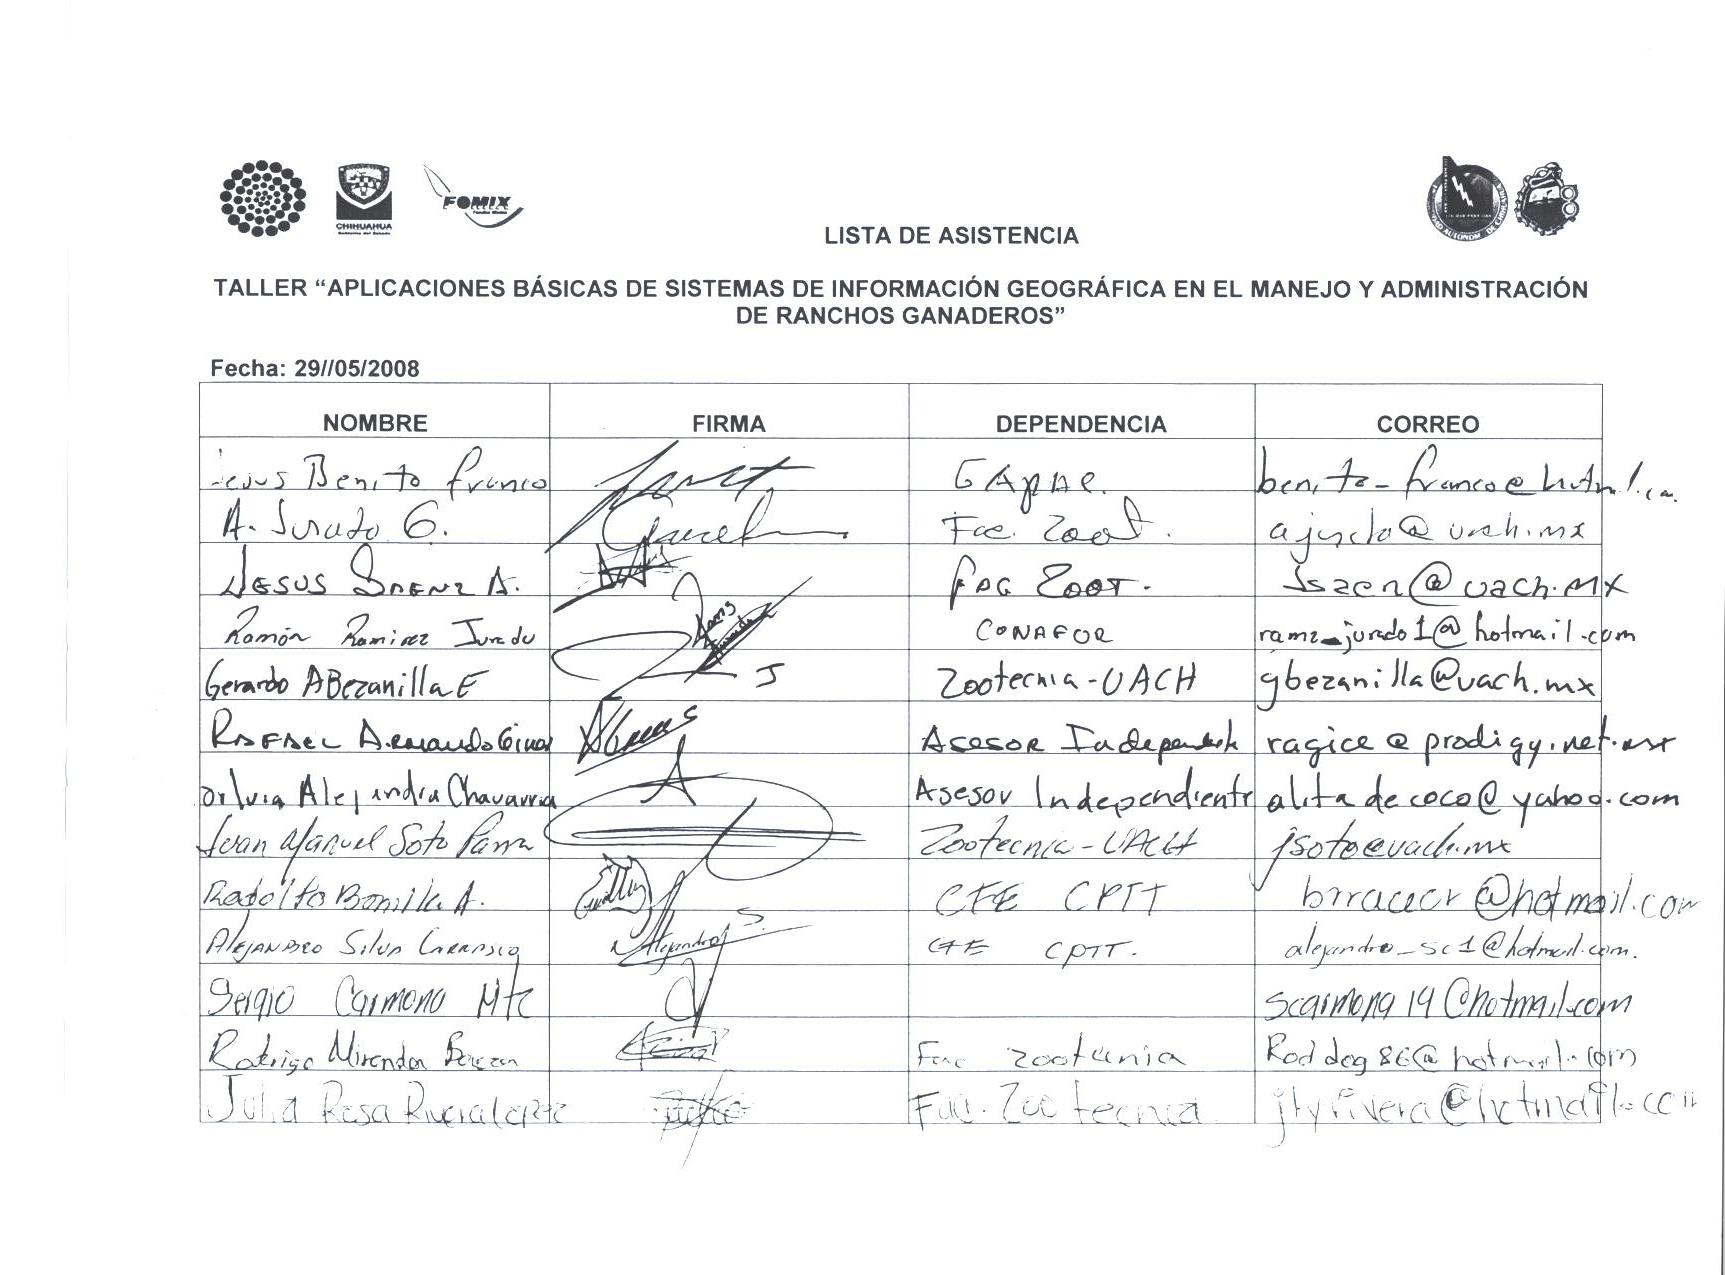 FOMIX
CHIHUAHUA
LISTA DE ASISTENCIA
TALLER “APLICACIONES BÁSICAS DE SISTEMAS DE INFORMACIÓN GEOGRÁFICA EN EL MANEJO Y ADMINISTRACIÓN
DE RANCHOS GANADEROS”
Fecha: 29//05/2008
NOMBRE FIRMA DEPENDENCIA CORREO
Jesus Benito Franco benito-franco@hotmail.com
A. Jurado G. Fac. Zoot. ajurado@uach.mx
JESUS SAENZ A. FAC ZOOT. jsaen@uach.mx
Ramón Ramirez Jurado CONAFOR ramz_jurado1@hotmail.com
Gerardo A Bezanilla E Zootecnia-UACH gbezanilla@uach.mx
RAFAEL Armando Asesor Independiente ragice@prodigy.net.mx
Silvia Alejandra Chavarria Asesor Independiente alitadecoco@yahoo.com
Juan Manuel Soto Parra Zootecnia-UACH jsoto@uach.mx
Rodolfo Bonilla A. CFE CPTT @hotmail.com
ALEJANDRO SILVA CARRASCO Alejandro S. CFE CPTT. alejandro_sc1@hotmail.com.
Sergio Carmona Mtz scarmona19@hotmail.com
Rodrigo Miranda Fac zootecnia Roddog86@hotmail.com
Julia Rosa Rivera Lopez Fac. Zootecnia jtyrivera@hotmail.com